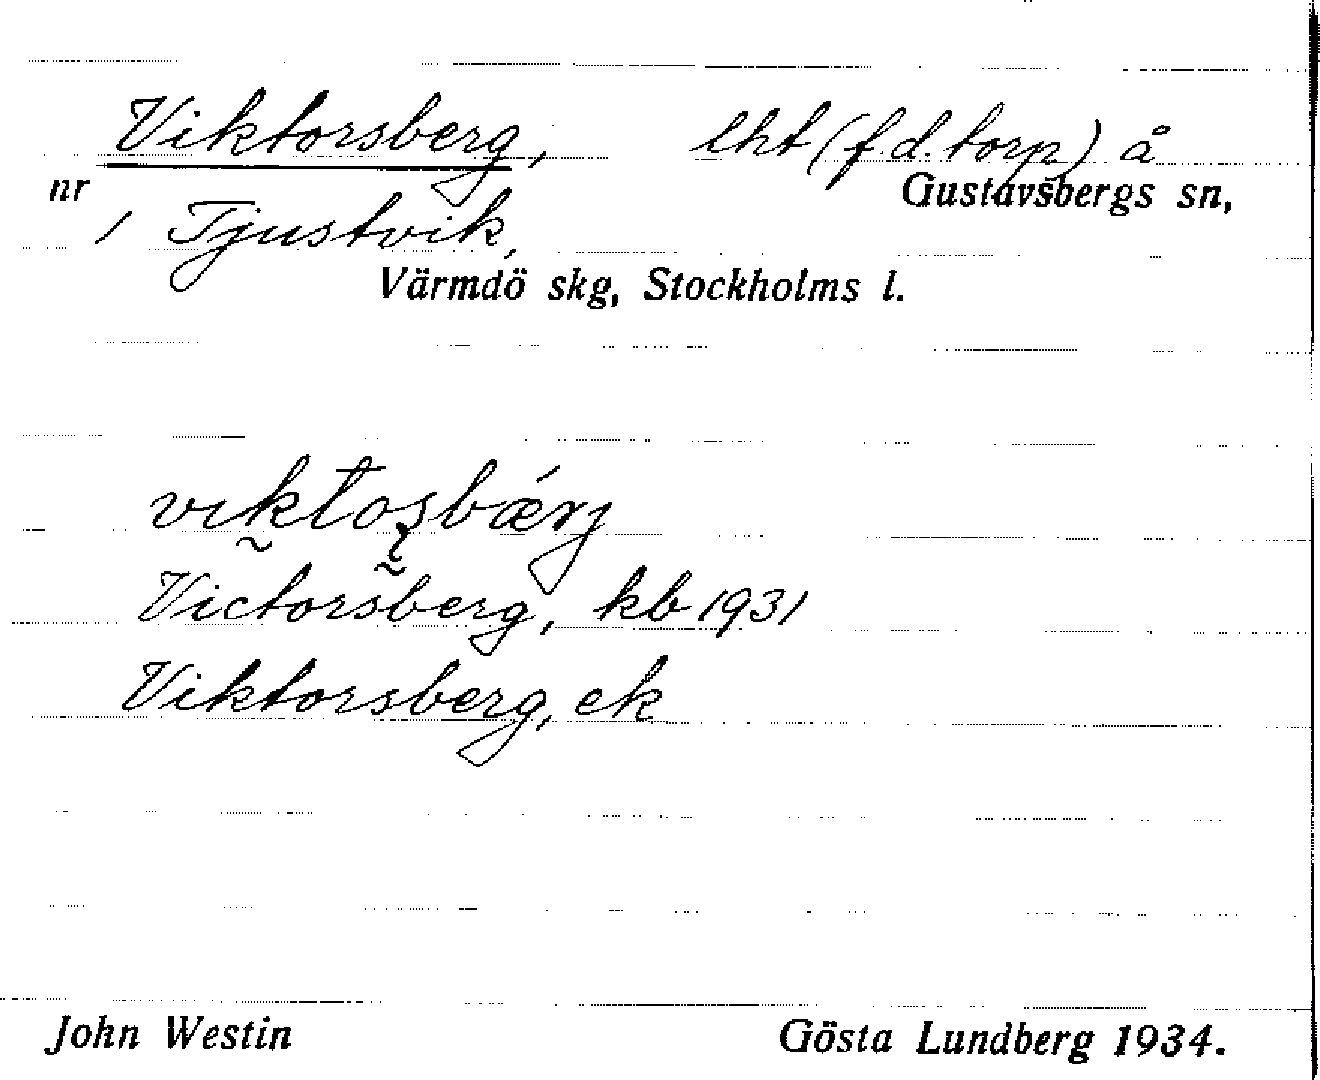 Viktorsberg, lht (f.d. torp) å
nr Gustavsbergs sn,
1 Tjustvik,
Värmdö skg, Stockholms l.
Victorsberg, kb 1931
Viktorsberg, ek
John Westin Gösta Lundberg 1934.